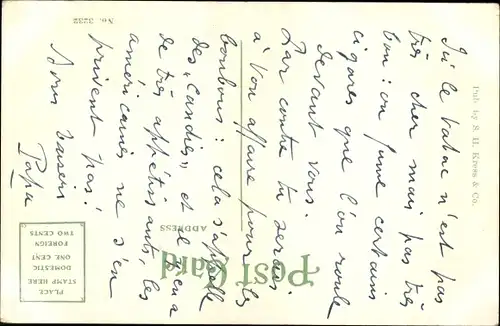 Ici le tabac n'est pas
très cher mais pas très
bon : on fume certains
cigares que l'on roule
devant vous.
Par contre tu serais
à ton affaire pour les
bonbons : cela s'appelle
des "Candies" et il y en a
de très appétissants les
américaines ne s'en
privent pas !
Bons baisers
Papa
Post Card
ADDRESS
PLACE
STAMP HERE
DOMESTIC
ONE CENT
FOREIGN
TWO CENTS
No. 3232
Pub. by S. H. Kress & Co.